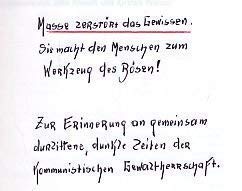 Masse zerstört das Gewissen.
Sie macht den Menschen zum
Werkzeug des Bösen!
Zur Erinnerung an gemeinsam
durlittene, dunkle Zeiten der
Kommunistischen Gewaltherrschaft.